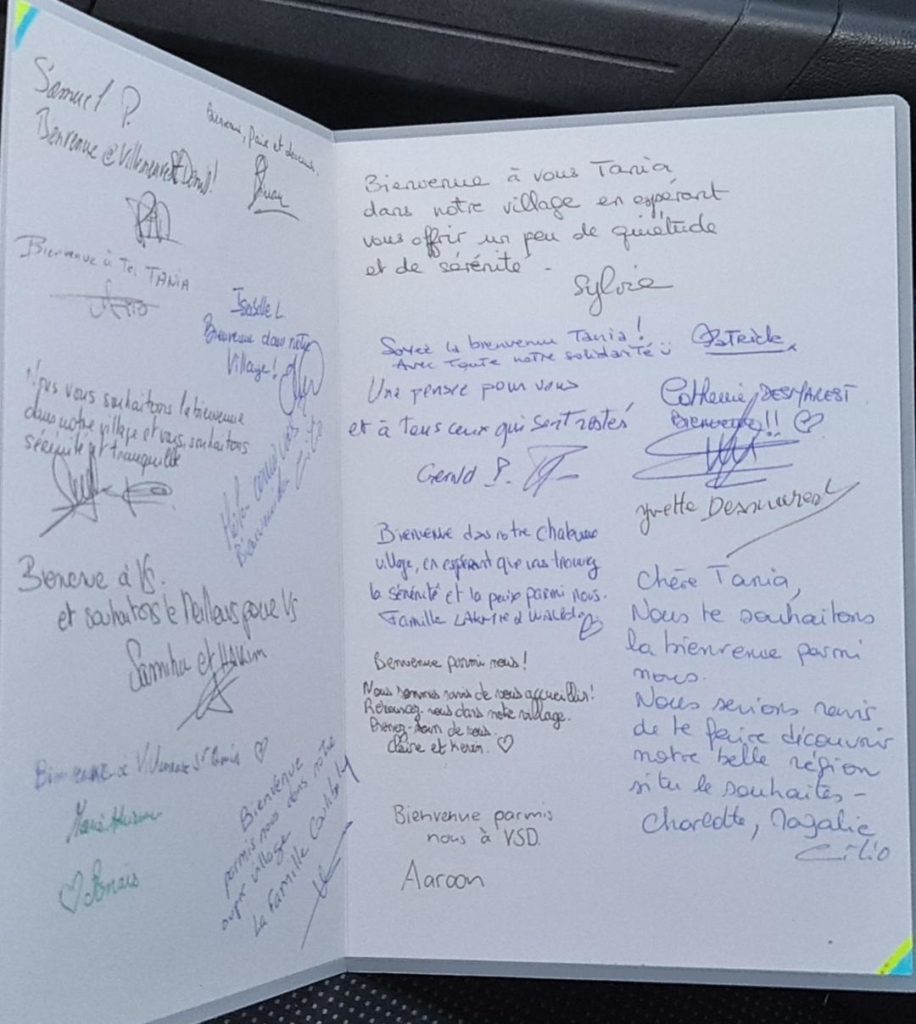 Samuel P.
Bienvenue @ Villeneuve St Denis!
paix et
Bienvenue à Toi TANIA
Isabelle L
Bienvenue dans notre
Village!
Nous vous souhaitons la bienvenue
dans notre village et vous souhaitons
sérénité et tranquillité
Bienvenue à Vs.
et souhaitons le Meilleur pour Vs
Samiha et HAKIM
Bienvenue à Villeneuve St Denis ♡
♡ Anaïs
Bienvenue
parmis nous dans notre
village
La famille
Bienvenue à vous Tania
dans notre village en espérant
vous offrir un peu de quiétude
et de sérénité.
Sylvie
Soyez la bienvenue Tania!
Avec toute notre solidarité
Patrick
Une pensée pour vous
et à tous ceux qui sont restés
Gerald P.
Catherine DESMAREST
Bienvenue!! ♡
Yvette Desmarest
Bienvenue dans notre
village, en espérant que vous trouvez
la sérénité et la paix parmi nous.
Famille
Bienvenue parmi nous!
Nous sommes ravis de vous accueillir!
dans notre village.
Prenez-soin de vous.
Claire et Keren. ♡
Bienvenue parmis
nous à VSD.
Aaroon
Chère Tania,
Nous te souhaitons
la bienvenue parmi
nous.
Nous serions ravis
de te faire découvrir
notre belle région
si tu le souhaites -
Charlotte,